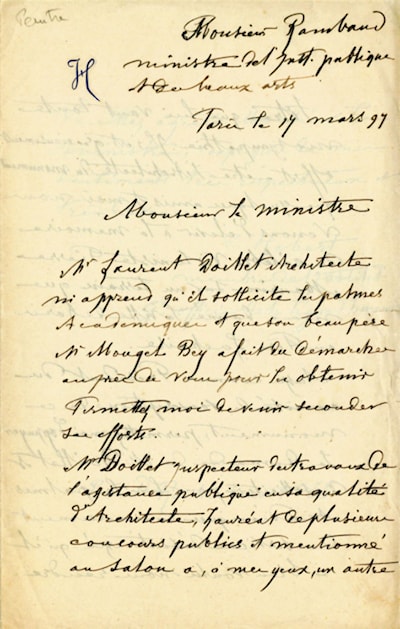 Peintre
Monsieur Rambaud
ministre de l'Inst. publique
& des beaux arts
Paris le 17 mars 97
Monsieur le ministre
Mr Laurent Doillet Architecte
m'apprend qu'il sollicite les palmes
Académiques et que son beau père
Mr Mougel Bey a fait des démarches
auprès de vous pour les obtenir
Permettez moi de venir seconder
ses efforts.
Mr Doillet inspecteur des travaux de
l'assistance publique en sa qualité
d'Architecte, Lauréat de plusieurs
concours publics et mentionné
au salon a, à mes yeux, un autre